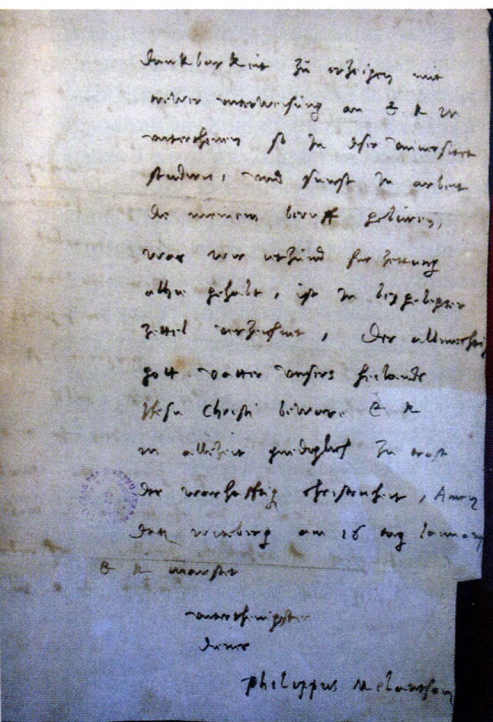 dankbarkeit zu erzeigen mit
trewer unterweisung an E k M
unterthanen so in diser universitet
studirn, und sunst in arbeit
die meinem beruff geburen,
was wir itzund fur zeittung
alhie gehabt, ist in beygelegter
zettel verzeichnet, Der allmechtig
gott vatter unsers heilands
Jhesu Christi beware E k
M allezeit gnediglich zu trost
der warhafftigen christenheit, Amen
dat. witeberg am 16 tag January
E k maiestet
unterthenigster
diener
Philippus Melanthon